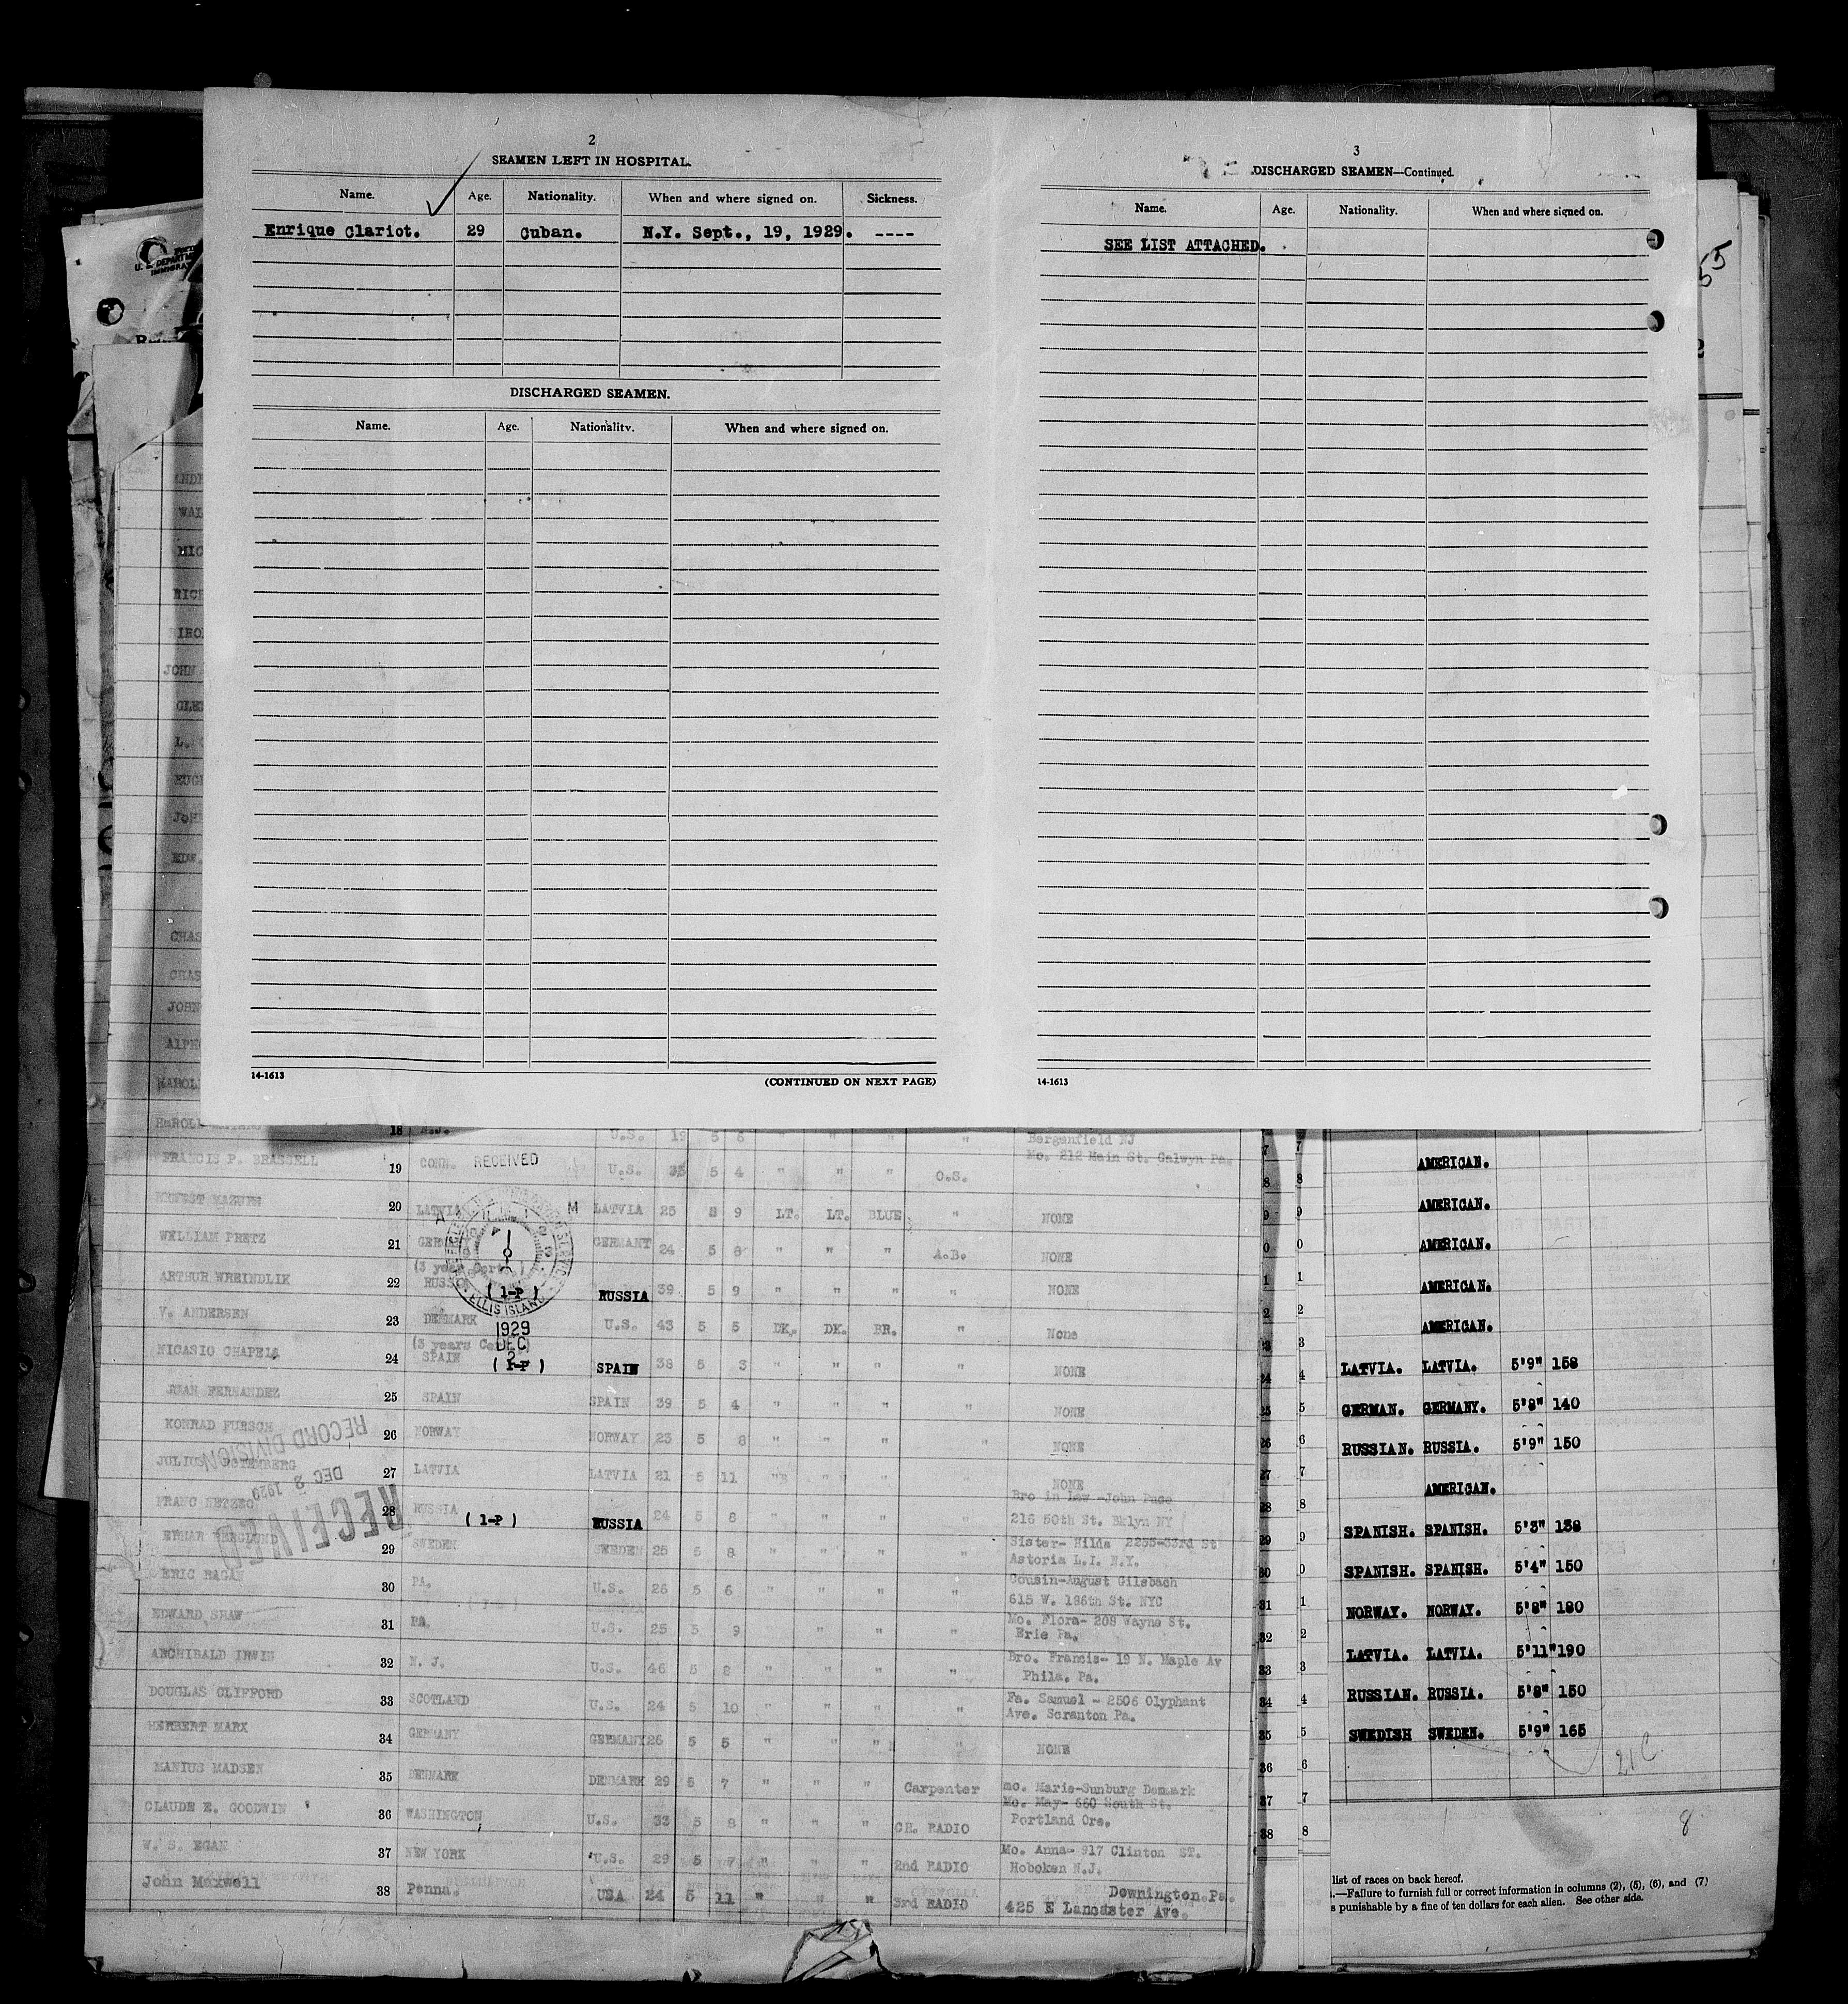 2
SEAMEN LEFT IN HOSPITAL.
Name. Age. Nationality. When and where signed on. Sickness.
Enrique Clariot. 29 Cuban. N.Y. Sept., 19, 1929. ----
DISCHARGED SEAMEN.
Name. Age. Nationality. When and where signed on.
14-1613
(CONTINUED ON NEXT PAGE)
3
DISCHARGED SEAMEN—Continued.
Name. Age. Nationality. When and where signed on.
SEE LIST ATTACHED.
14-1613
55
WAL
RICH
JOHN
L.
EDW.
CHAS
CHAS
JOHN
18 N.J. U.S. 19 5 6 " " " " Bergenfield NJ
FRANCIS P. BRASSELL 19 CONN. U.S. 35 5 4 " " " O.S. Mo. 212 Main St. Colwyn Pa.
RECEIVED
20 LATVIA LATVIA 25 5 9 LT. LT. BLUE " NONE
WILLIAM PRETZ 21 GERMANY GERMANY 24 5 8 " " " A.B. NONE
ARTHUR WREINDLIK 22 RUSSIA (1-P) RUSSIA 39 5 9 " " " " NONE
ELLIS ISLAND
V. ANDERSEN 23 DENMARK U.S. 43 5 5 DK. DK. BR. " None
1929
DEC
2
NICASIO CHAPELA 24 SPAIN (1-P) SPAIN 38 5 3 " " " " NONE
JUAN FERNANDEZ 25 SPAIN SPAIN 39 5 4 " " " " NONE
KONRAD FURSCH 26 NORWAY NORWAY 23 5 8 " " " " NONE
RECORD DIVISION
JULIUS ROTEMBERG 27 LATVIA LATVIA 21 5 11 " " " " NONE
DEC 2 1929
RECEIVED
FRANC NETZEG 28 RUSSIA (1-P) RUSSIA 24 5 8 " " " " Bro in Law -John Puce
216 50th St. Bklyn NY
EINAR BERGLUND 29 SWEDEN SWEDEN 25 5 8 " " " " Sister- Hilda 2255-33rd St
Astoria L.I. N.Y.
ERIC RAGAN 30 PA. U.S. 26 5 6 " " " " Cousin-August Gilsbach
615 W. 186th St. NYC
EDWARD SHAW 31 PA. U.S. 25 5 9 " " " Mo. Flora- 208 Wayne St.
Erie Pa.
ARCHIBALD IRWIN 32 N. J. U.S. 46 5 8 " " " " Bro. Francis- 19 N. Maple Av
Phila. Pa.
DOUGLAS CLIFFORD 33 SCOTLAND U.S. 24 5 10 " " " " Fa. Samuel - 2506 Olyphant
Ave. Scranton Pa.
HERBERT MARX 34 GERMANY GERMANY 26 5 5 " " " " NONE
MANIUS MADSEN 35 DENMARK DENMARK 29 5 7 " " " Carpenter mo. Marie-Sunburg Denmark
CLAUDE E. GOODWIN 36 WASHINGTON U.S. 33 5 8 " " " CH. RADIO Mo. May- 660 South St.
Portland Ore.
W. S. EGAN 37 NEW YORK U.S. 29 5 7 " " " 2nd RADIO Mo. Anna- 917 Clinton ST.
Hoboken N.J.
John Maxwell 38 Penna. USA 24 5 11 " " " 3rd RADIO Downington Pa.
425 E Lancaster Ave.
AMERICAN.
AMERICAN.
AMERICAN.
AMERICAN.
AMERICAN.
LATVIA. LATVIA. 5'9" 158
GERMAN. GERMANY. 5'8" 140
RUSSIAN. RUSSIA. 5'9" 150
AMERICAN.
SPANISH. SPANISH. 5'3" 138
SPANISH. SPANISH. 5'4" 150
NORWAY. NORWAY. 5'8" 180
LATVIA. LATVIA. 5'11" 190
RUSSIAN. RUSSIA. 5'8" 150
SWEDISH SWEDEN. 5'9" 165
21 C
8
list of races on back hereof.
.—Failure to furnish full or correct information in columns (2), (5), (6), and (7)
s punishable by a fine of ten dollars for each alien. See other side.